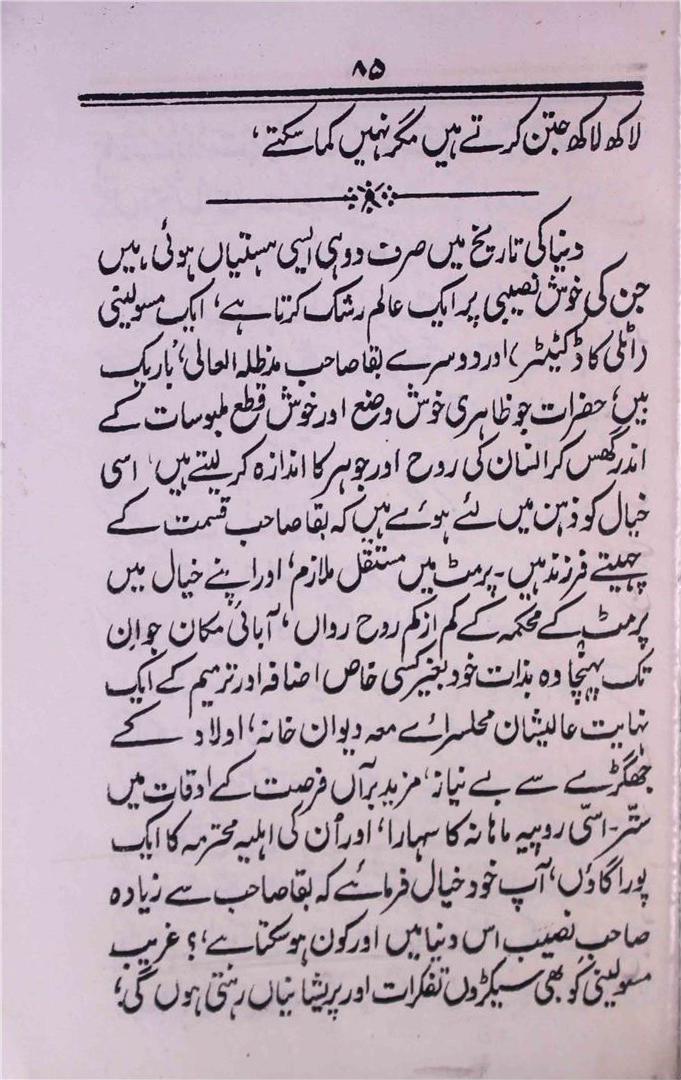 ۸۵
لاکھ لاکھ جتن کرتے ہیں مگر نہیں کما سکتے،
دنیا کی تاریخ میں صرف دو ہی ایسی ہستیاں ہوئی ہیں
جن کی خوش نصیبی پر ایک عالم رشک کرتا ہے، ایک مسولینی
(اٹلی کا ڈکٹیٹر) اور دوسرے بقا صاحب مدظلہ العالی، باریک
بیں، حضرات جو ظاہری خوش وضع اور خوش قطع ملبوسات کے
اندر گھس کر انسان کی روح اور جوہر کا اندازہ کر لیتے ہیں، اسی
خیال کو ذہن میں لئے ہوئے ہیں کہ بقا صاحب قسمت کے
چہیتے فرزند ہیں۔ پرمٹ میں مستقل ملازم، اور اپنے خیال میں
پرمٹ کے محکمہ کے کم از کم روح رواں، آبائی مکان جو ان
تک پہنچا وہ بذات خود بغیر کسی خاص اضافہ اور ترمیم کے ایک
نہایت عالیشان محلسرائے معہ دیوان خانہ، اولاد کے
جھگڑے سے بے نیاز، مزید برآں فرصت کے اوقات میں
ستّر-اسّی روپیہ ماہانہ کا سہارا، اور اُن کی اہلیہ محترمہ کا ایک
پورا گاؤں، آپ خود خیال فرمائے کہ بقا صاحب سے زیادہ
صاحبِ نصیب اس دنیا میں اور کون ہو سکتا ہے،؟ غریب
مسولینی کو بھی سیکڑوں تفکرات اور پریشانیاں رہتی ہوں گی،